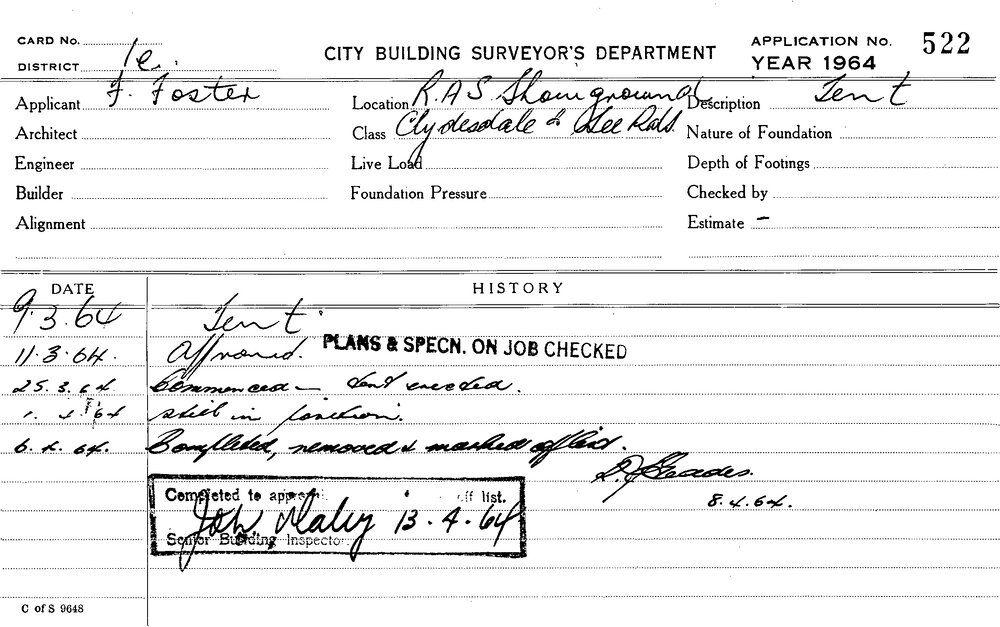 CARD No.
1e.
DISTRICT
CITY BUILDING SURVEYOR'S DEPARTMENT
APPLICATION No. 522
YEAR 1964
Applicant F. Foster
Location R.A.S Showground
Description Tent
Architect
Class Clydesdale & Lee Rds.
Nature of Foundation
Engineer
Live Load
Depth of Footings
Builder
Foundation Pressure
Checked by
Alignment
Estimate -
DATE HISTORY
9.3.64 Tent.
11.3.64. Approved. PLANS & SPECN. ON JOB CHECKED
25.3.64 Commenced - tent erected.
1. 4. 64 still in position.
6.4.64. Completed, removed & marked off list.
8.4.64.
Completed to off list.
John 13.4.64
Senior Building Inspector.
C of S 9648